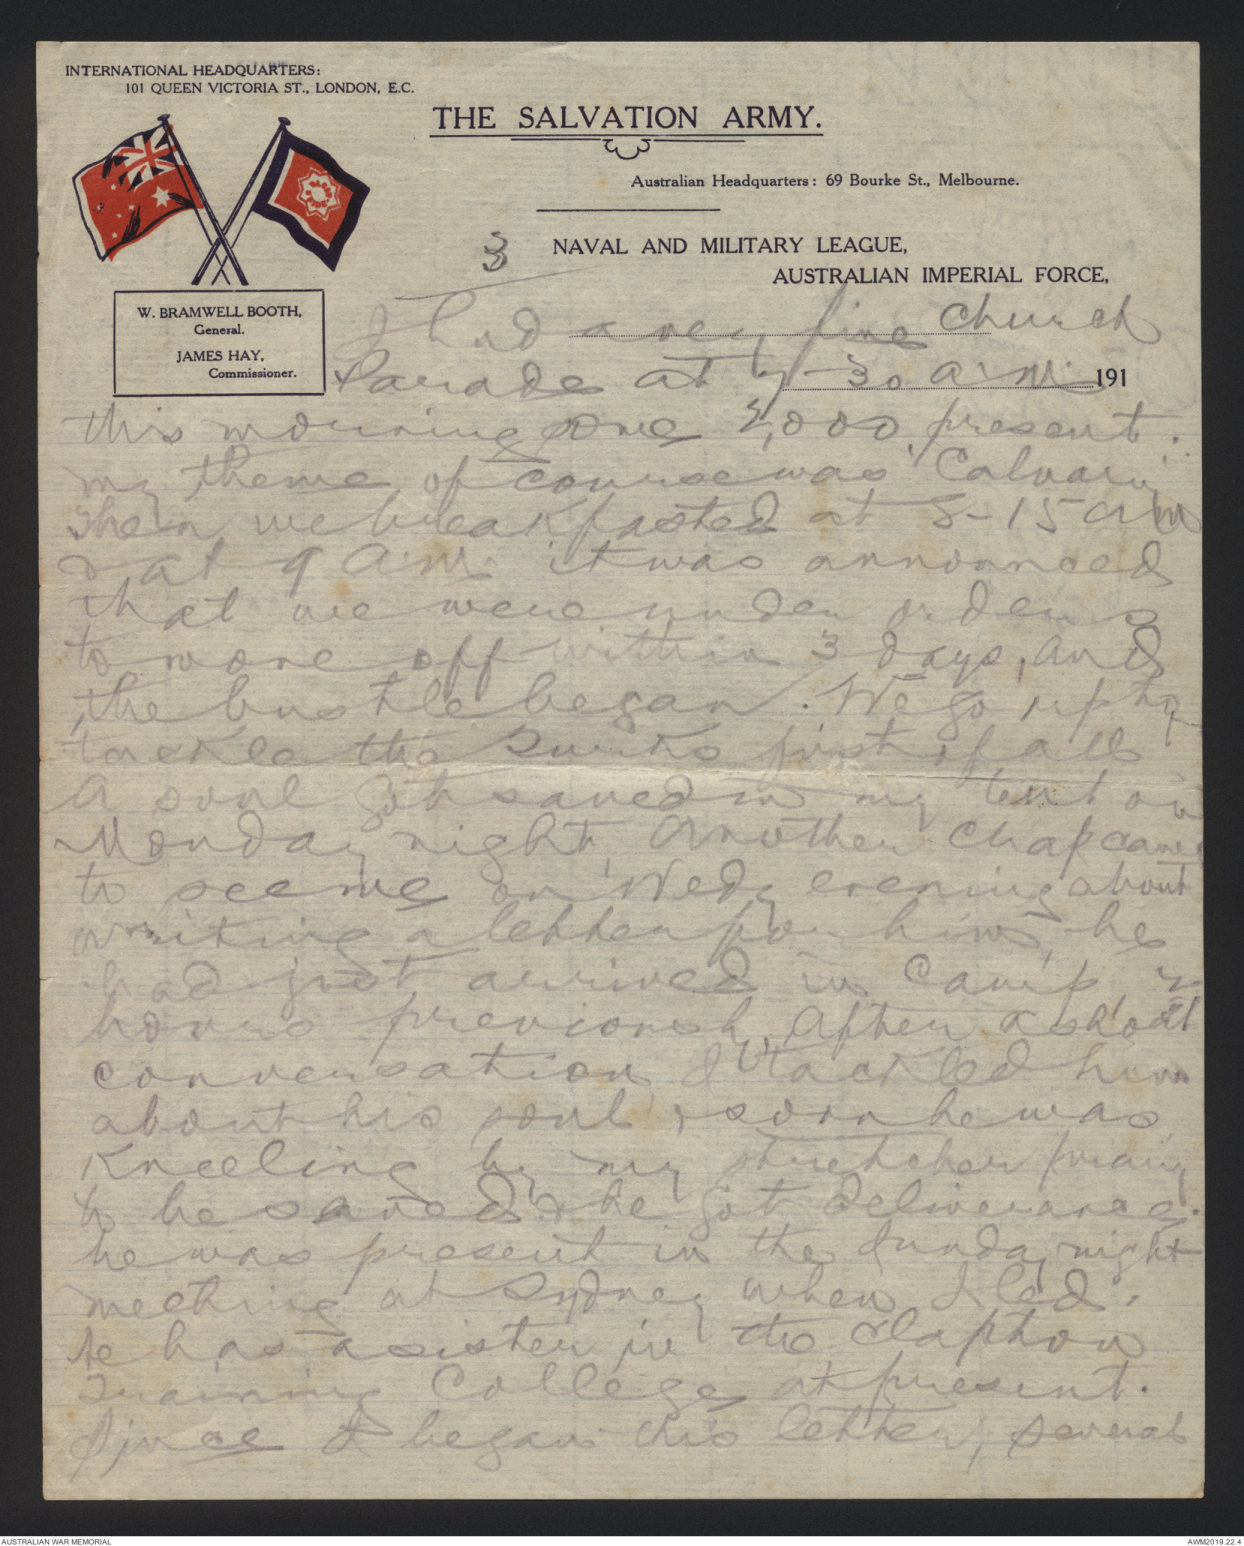 INTERNATIONAL HEADQUARTERS:
101 QUEEN VICTORIA ST., LONDON, E.C.
THE SALVATION ARMY.
Australian Headquarters: 69 Bourke St., Melbourne.
3
NAVAL AND MILITARY LEAGUE,
AUSTRALIAN IMPERIAL FORCE,
W. BRAMWELL BOOTH,
General.
JAMES HAY,
Commissioner.
I had a very fine Church
Parade at 7-30 a.m. 191
this morning some 2,000 present.
my theme of course was "Calvary"
Then we breakfasted at 8-15 am
& at 9 A.M. it was announced
that we were under orders
to move off within 3 days, and
the bustle began. We go up to
tackle the Turks first of all
A soul got saved in my tent on
Monday night, Another Chap came
to see me on Wedy evening about
writing a letter for him, he
had just arrived in Camp 2
hours previously. After a short
conversation I tackled him
about his soul, & soon he was
Kneeling by my stretcher praying
to be saved & he got deliverance.
he was present in the Sunday night
meeting at Sydney when I led.
He has a sister in the Clapton
Training College at present.
Since I began this letter, several
AUSTRALIAN WAR MEMORIAL
AWM2019.22.4